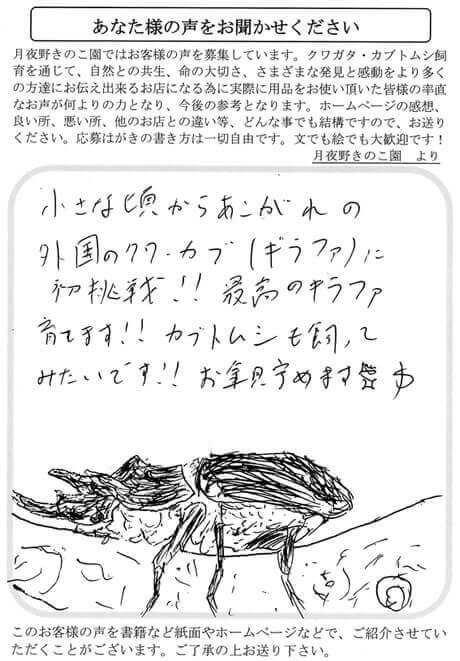 あなた様の声をお聞かせください
月夜野きのこ園ではお客様の声を募集しています。クワガタ・カブトムシ飼
育を通じて、自然との共生、命の大切さ、さまざまな発見と感動をより多く
の方達にお伝え出来るお店になる為に実際に用品をお使い頂いた皆様の率直
なお声が何よりの力となり、今後の参考となります。ホームページの感想、
良い所、悪い所、他のお店との違い等、どんな事でも結構ですので、お送り
ください。応募はがきの書き方は一切自由です。文でも絵でも大歓迎です！
月夜野きのこ園　より
小さな頃からあこがれの
外国のクワ・カブ(ギラファ)に
初挑戦!! 最高のギラファ
育てます!! カブトムシも飼って
みたいです!! お
このお客様の声を書籍など紙面やホームページなどで、ご紹介させてい
ただくことがございます。ご了承の上お送り下さい。